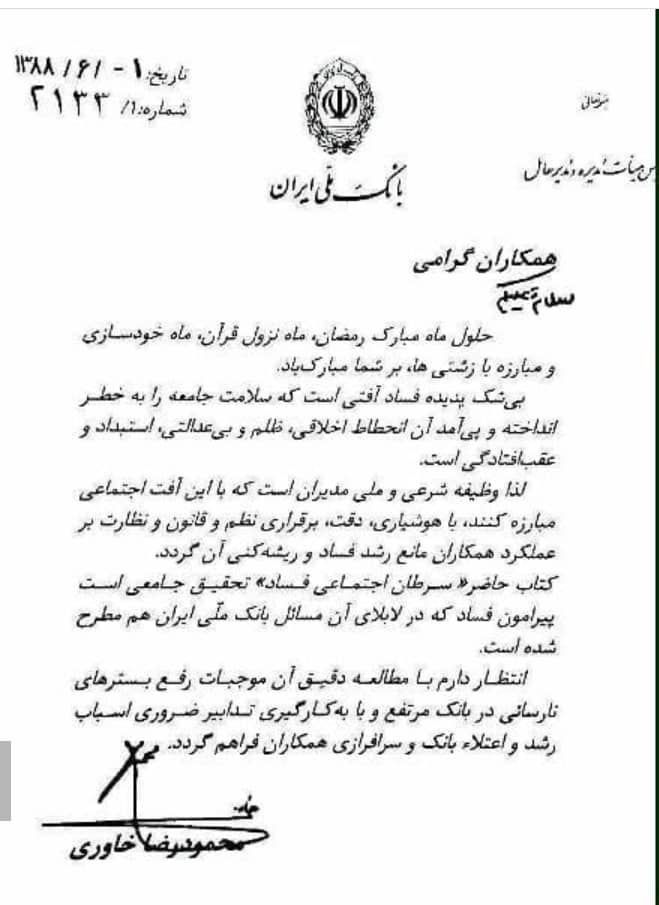 تاریخ: ۱ - /۶/ ۱۳۸۸
شماره: ۱/ ۲۱۳۳
بانک ملّی ایران
هیأت مدیره و مدیرعامل
همکاران گرامی
سلام علیکم
حلول ماه مبارک رمضان، ماه نزول قرآن، ماه خودسازی
و مبارزه با زشتی ها، بر شما مبارک‌باد.
بی‌شک پدیده فساد آفتی است که سلامت جامعه را به خطر
انداخته و پی‌آمد آن انحطاط اخلاقی، ظلم و بی‌عدالتی، استبداد و
عقب‌افتادگی است.
لذا وظیفه شرعی و ملی مدیران است که با این آفت اجتماعی
مبارزه کنند، با هوشیاری، دقت، برقراری نظم و قانون و نظارت بر
عملکرد همکاران مانع رشد فساد و ریشه‌کنی آن گردد.
کتاب حاضر« سرطان اجتماعی فساد» تحقیق جامعی است
پیرامون فساد که در لابلای آن مسائل بانک ملّی ایران هم مطرح
شده است.
انتظار دارم با مطالعه دقیق آن موجبات رفع بسترهای
نارسائی در بانک مرتفع و با به‌کارگیری تدابیر ضروری اسباب
رشد و اعتلاء بانک و سرافرازی همکاران فراهم گردد.
محمودرضا خاوری